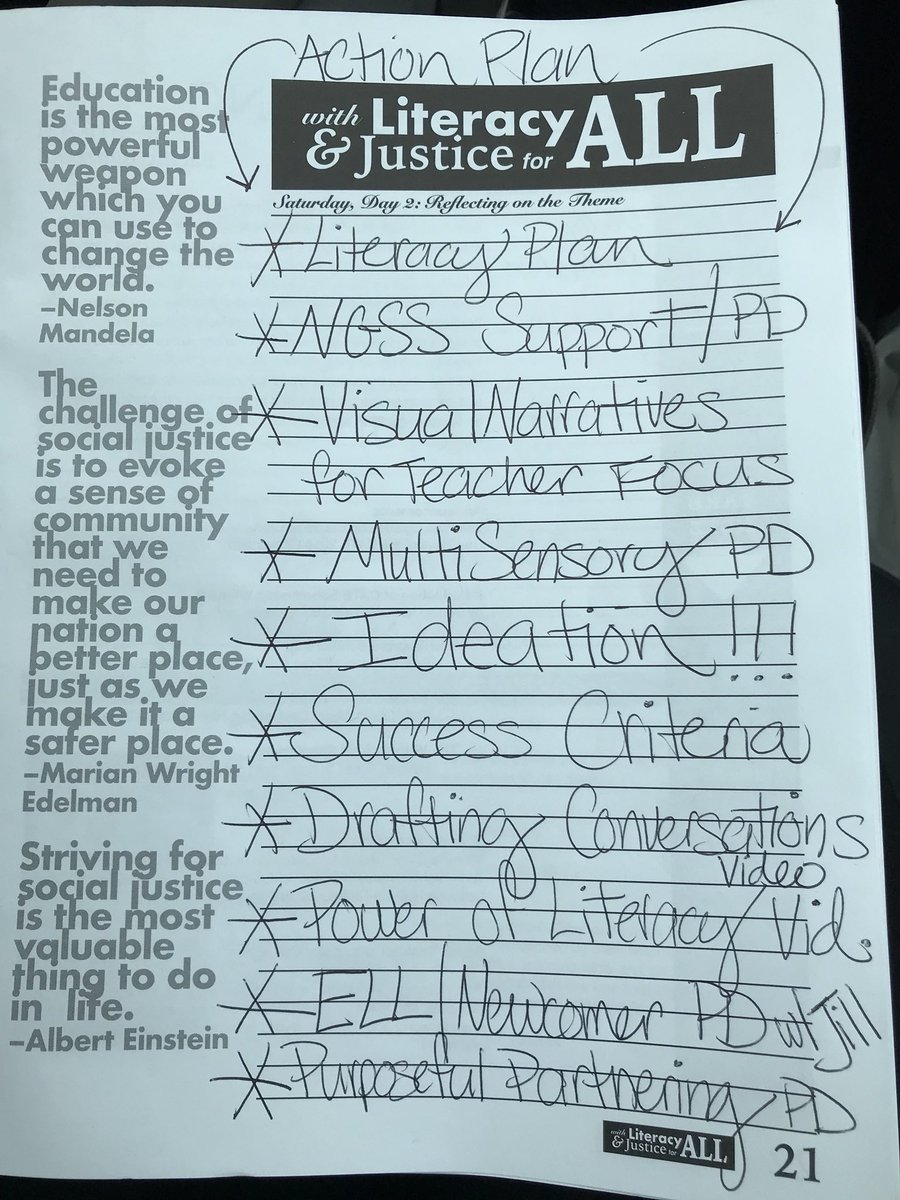 Action Plan
with Literacy
& Justice for ALL
Saturday, Day 2: Reflecting on the Theme
Education
is the most
powerful
weapon
which you
can use to
change the
world.
–Nelson
Mandela
The
challenge of
social justice
is to evoke
a sense of
community
that we
need to
make our
nation a
better place,
just as we
make it a
safer place.
–Marian Wright
Edelman
Striving for
social justice
is the most
valuable
thing to do
in life.
–Albert Einstein
Literacy Plan
NGSS Support/PD
Visual Narratives
for Teacher Focus
MultiSensory PD
Ideation !!!
Success Criteria
Drafting Conversations
Video
Power of Literacy Vid.
ELL/Newcomer PD w/ Jill
Purposeful Partnering PD
with Literacy
& Justice for ALL
21